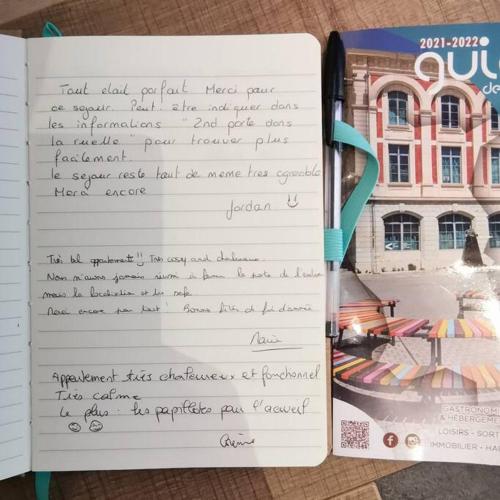 Tout etait parfait Merci pour
ce sejour. Peut etre indiquer dans
les informations "2nd porte dans
la ruelle" pour trouver plus
facilement.
le sejour reste tout de meme tres agreable
Merci encore
Jordan
Très bel appartement!! Très cosy and chaleureux.
Nous n'avons jamais réussi à fermer la porte de l'entrée
mais la localisation est top
Merci encore pour tout! Bonnes fêtes de fin d'année
Marie
Appartement très chaleureux et fonctionnel
Très calme
Le plus: les papillotes pour l'accueil
2021-2022
gui
de
GASTRONOM
& HÉBERGEME
LOISIRS - SORT
IMMOBILIER - HA